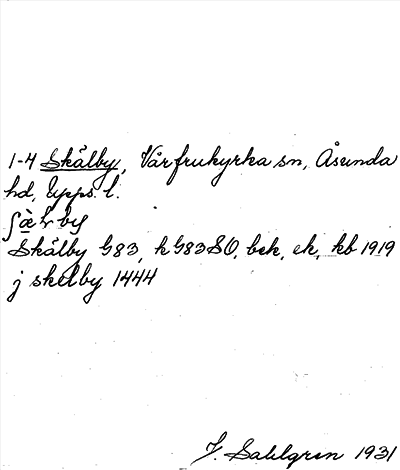 1-4 Skälby, Vårfrukyrka sn, Åsunda
hd, Upps. l.
ʃæ̀ḷby
Skälby G83, k G83SO, bek, ek, kb 1919
j skelby 1444
J. Sahlgren 1931